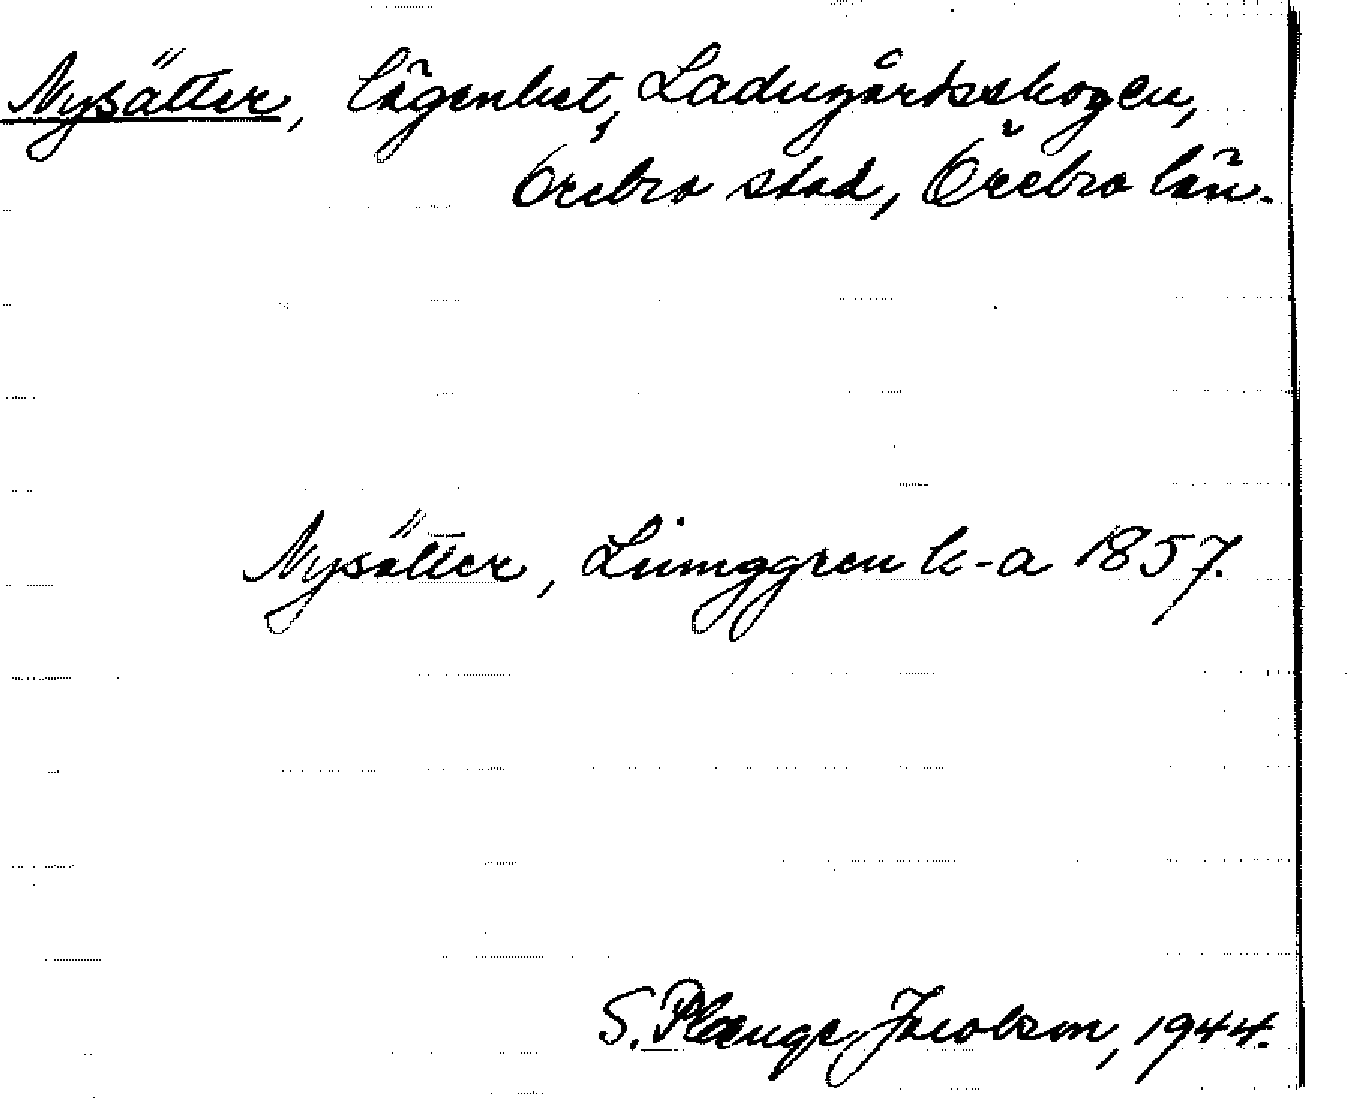 Nysätter, lägenhet, Ladugårdsskogen,
Örebro stad, Örebro län.
Nysätter, Ljunggren k-a 1857.
S. Plænge Jacobson, 1944.